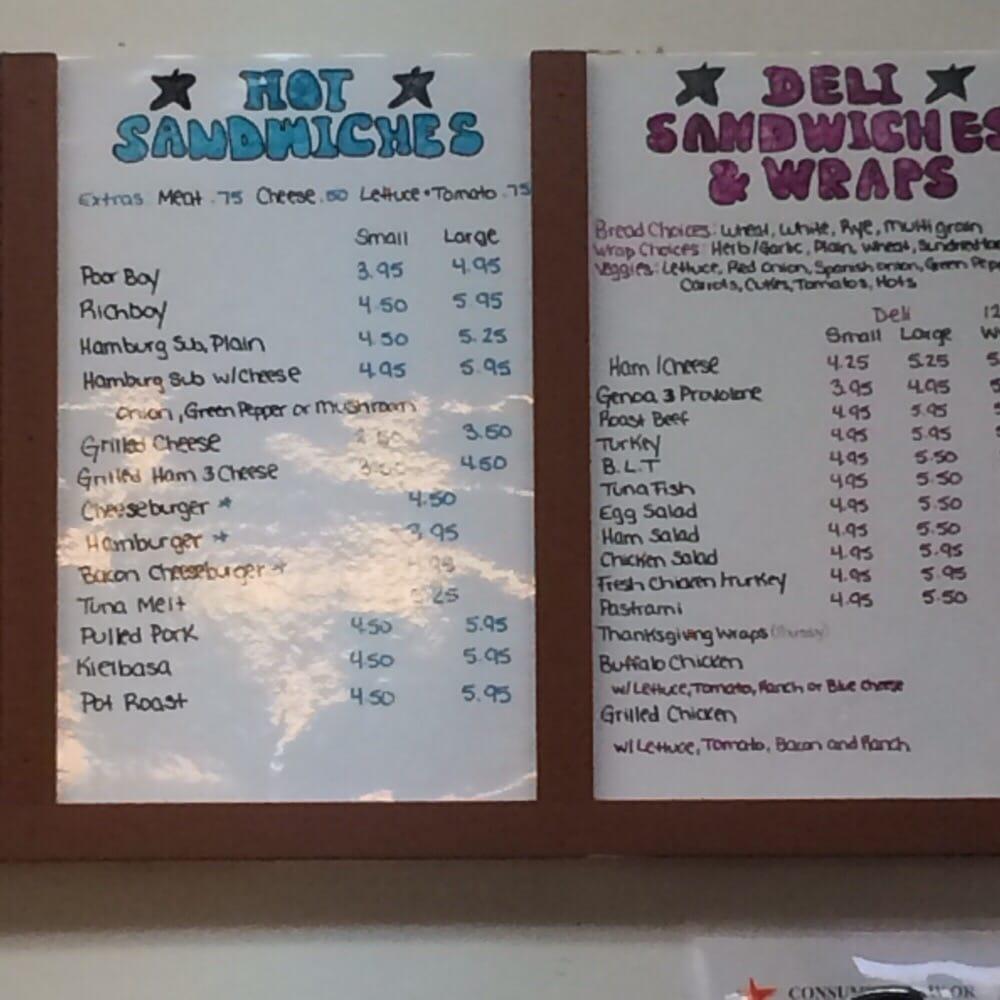 HOT
SANDWICHES
Extras: Meat .75 Cheese .50 Lettuce • Tomato .75
Small Large
Poor Boy 3.95 4.95
Richboy 4.50 5.95
Hamburg Sub, Plain 4.50 5.25
Hamburg Sub w/Cheese 4.95 5.95
onion, Green Pepper or Mushroom
Grilled Cheese 3.50
Grilled Ham 3 Cheese 4.50
Cheeseburger * 4.50
Hamburger * 3.95
Bacon Cheeseburger *
Tuna Melt
Pulled Pork 4.50 5.95
Kielbasa 4.50 5.95
Pot Roast 4.50 5.95
DELI
SANDWICHES
& WRAPS
Bread Choices: Wheat, White, Rye, Multigrain
Wrap Choices: Herb/Garlic, Plain, Wheat,
Veggies: Lettuce, Red Onion, Spanish onion, Green
Carrots, Cukes, Tomatos, Hots
Deli 12
Small Large
Ham/Cheese 4.25 5.25
Genoa 3 Provolone 3.95 4.95
Roast Beef 4.95 5.95
Turkey 4.95 5.95
B.L.T 4.95 5.50
Tuna Fish 4.95 5.50
Egg Salad 4.95 5.50
Ham Salad 4.95 5.50
Chicken Salad 4.95 5.95
Fresh Chicken/Turkey 4.95 5.95
Pastrami 4.95 5.50
Thanksgiving Wraps
Buffalo Chicken
w/Lettuce, Tomato, Ranch or Blue Cheese
Grilled Chicken
w/Lettuce, Tomato, Bacon and Ranch